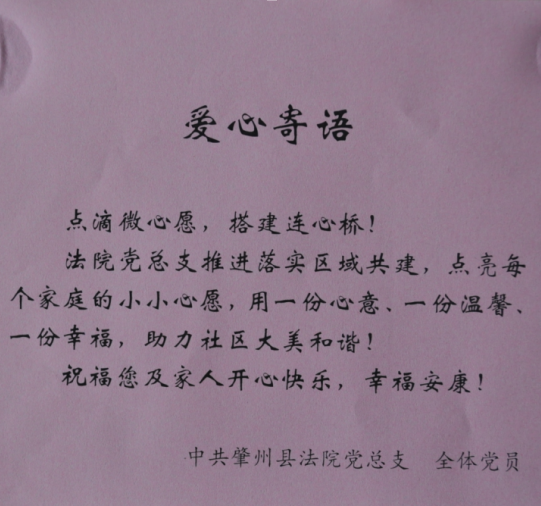 爱心寄语
点滴微心愿，搭建连心桥！
法院党总支推进落实区域共建，点亮每
个家庭的小小心愿，用一份心意、一份温馨、
一份幸福，助力社区大美和谐！
祝福您及家人开心快乐，幸福安康！
中共肇州县法院党总支　全体党员